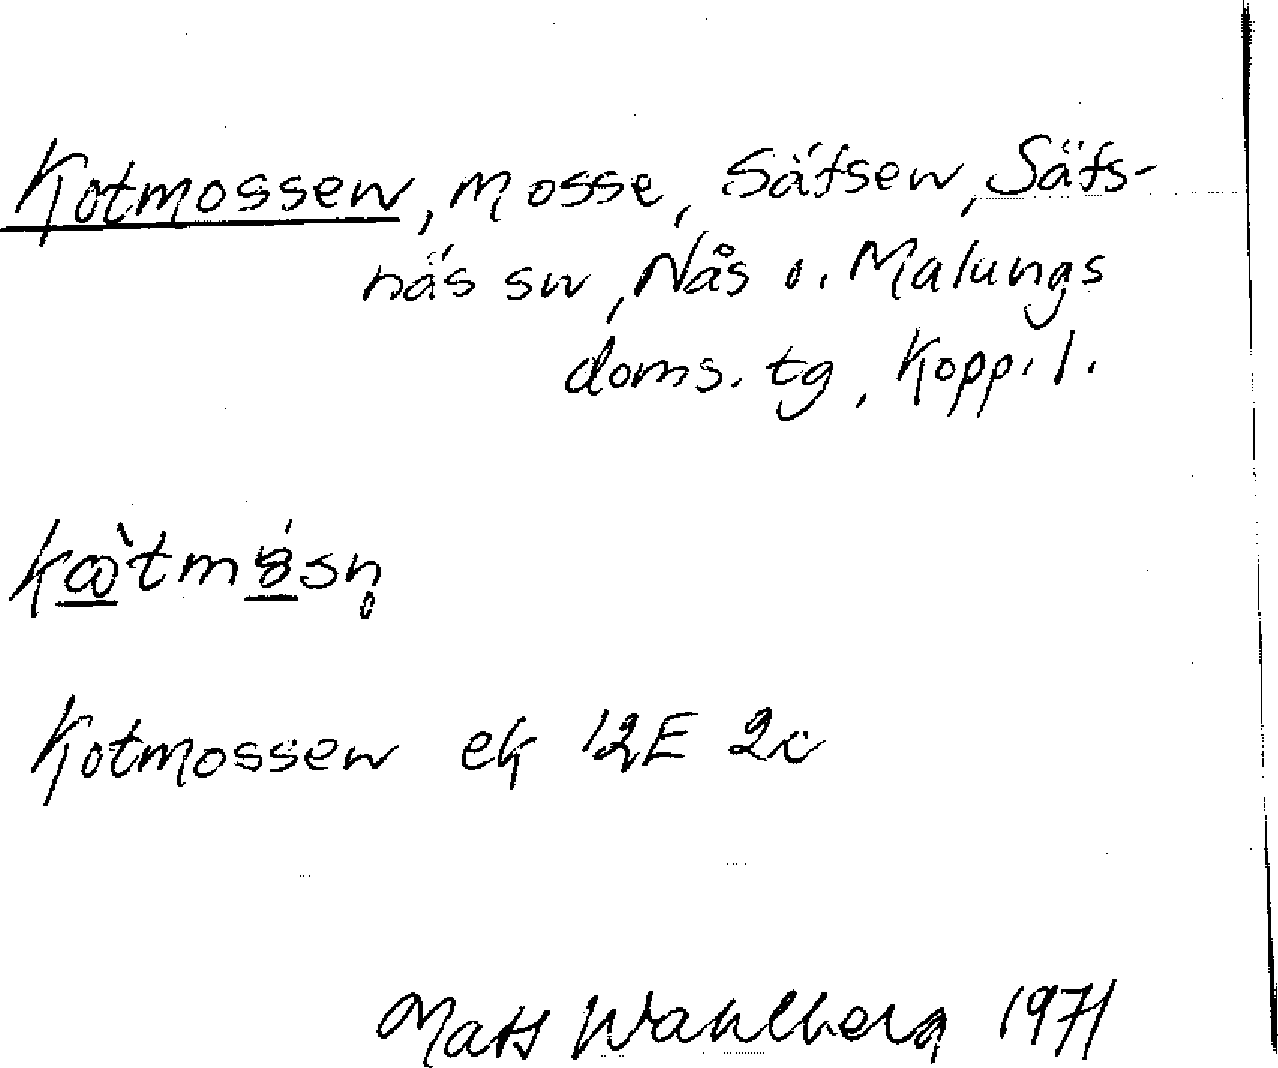 Kotmossen, mosse, Säfsen, Säfs-
näs sn, Nås o. Malungs
doms. tg, Kopp. l.
Kotmossen ek 12E 2c
Mats Wahlberg 1971